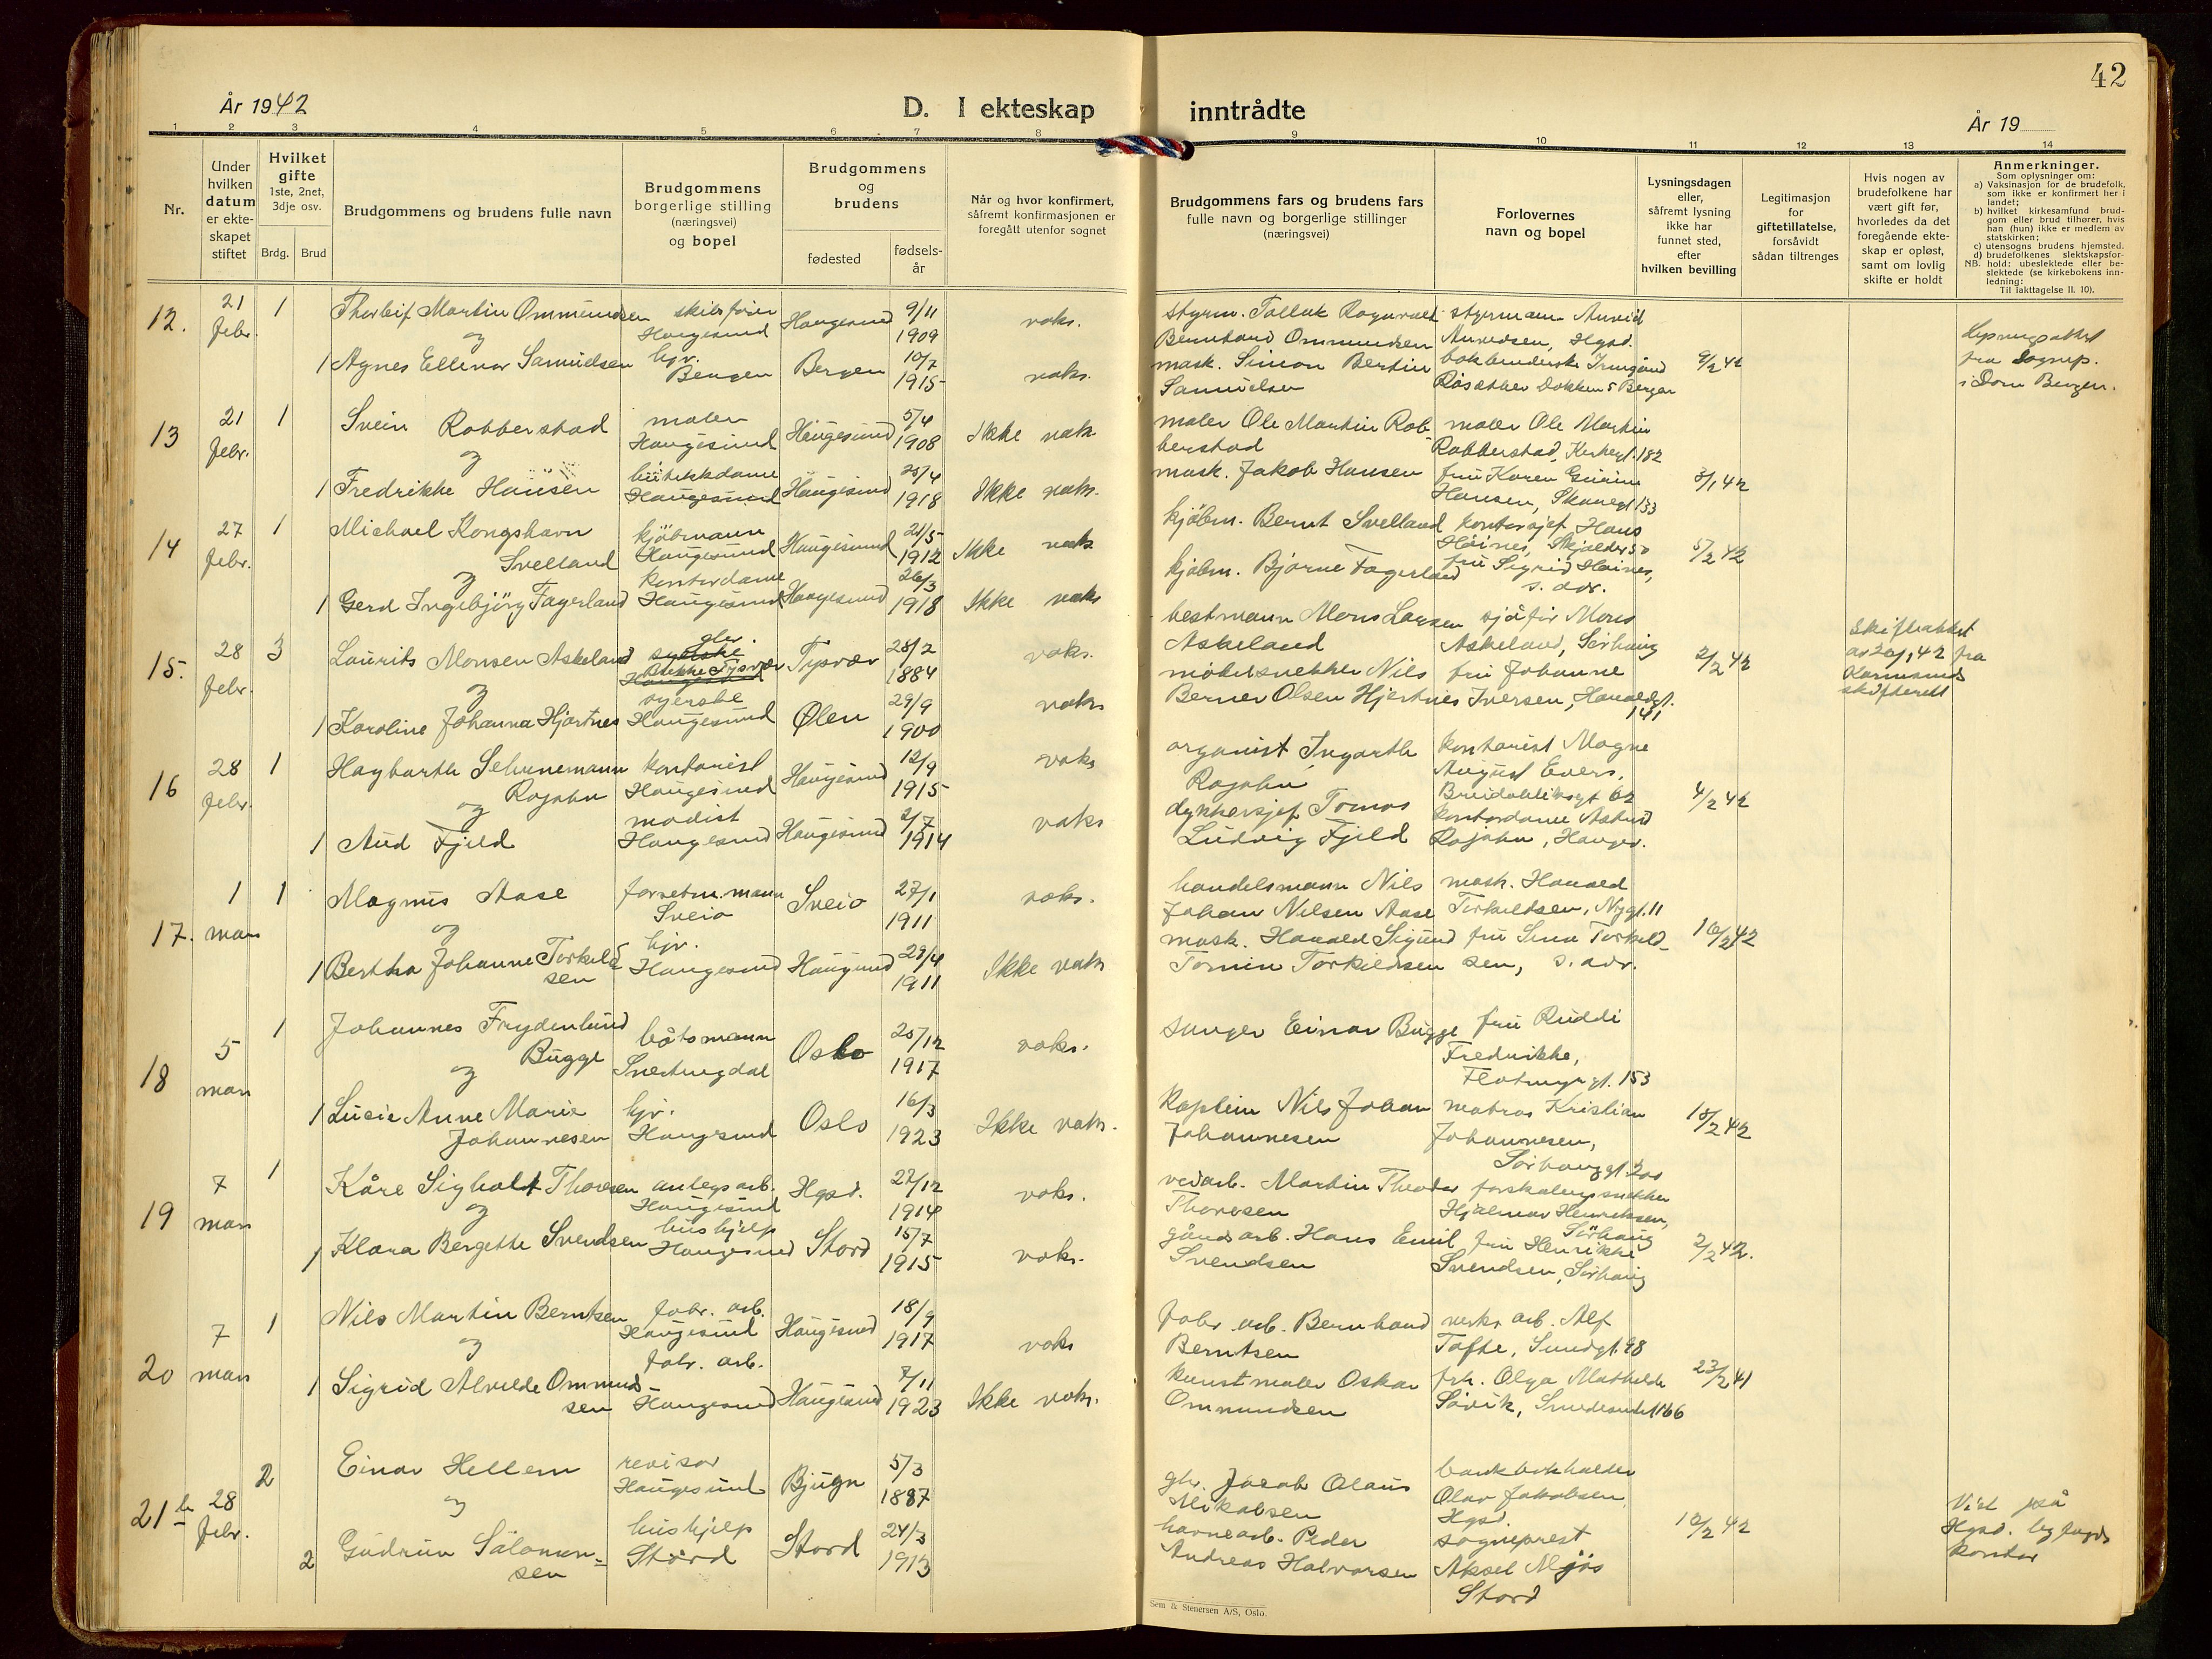 År 1942
D. I ekteskap inntrådte
42
År 19
1 2 3 4 5 6 7 8 9 10 11 12 13 14
Nr.
Under
hvilken
datum
er ekte-
skapet
stiftet
Hvilket
gifte
1ste, 2net,
3dje osv.
Brdg. Brud
Brudgommens og brudens fulle navn
Brudgommens
borgerlige stilling
(næringsvei)
og bopel
Brudgommens
og
brudens
fødested
fødsels-
år
Når og hvor konfirmert,
såfremt konfirmasjonen er
foregått utenfor sognet
Brudgommens fars og brudens fars
fulle navn og borgerlige stillinger
(næringsvei)
Forlovernes
navn og bopel
Lysningsdagen
eller,
såfremt lysning
ikke har
funnet sted,
efter
hvilken bevilling
Legitimasjon
for
giftetillatelse,
forsåvidt
sådan tiltrenges
Hvis nogen av
brudefolkene har
vært gift før,
hvorledes da det
foregående ekte-
skap er opløst,
samt om lovlig
skifte er holdt
Anmerkninger.
Som oplysninger om:
a) Vaksinasjon for de brudefolk,
som ikke er konfirmert her i
landet;
b) hvilket kirkesamfund brud-
gom eller brud tilhører, hvis
han (hun) ikke er medlem av
statskirken;
c) utensogns brudens hjemsted.
d) brudefolkenes slektskapsfor-
NB. hold: ubeslektede eller be-
slektede (se kirkebokens inn-
ledning:
Til iakttagelse II. 10).
12.
21
febr.
1
Thorleif Martin Ommundsen
og
1 Agnes Ellenor Samuelsen
skibsfører
Haugesund
hjv.
Bergen
Haugesund
Bergen
9/11
1909
10/7
1915
vaks.
vaks.
styrm. Tollak Ragnvald
Berntand Ommundsen
mask. Simon Bertin
Samuelsen
styrmann Arvid
Arvidsen, Hgsd.
bokbinderske Irmgard
Røsæther Dokken 5 Bergen
9/2 42
lysningsattest
fra Sognep.
i Dom Bergen.
13
21
febr.
1
Svein Robberstad
og
1 Fredrikke Hansen
maler
Haugesund
butikkdame
Haugesund
Haugesund
Haugesund
5/4
1908
25/4
1918
Ikke vak
Ikke vaks.
maler Ole Martin Rob
berstad
mask. Jakob Hansen
maler Ole Martin
Robberstad, Kirkegt. 182
fru Karen Gurine
Hansen, Skaregt 133
3/1 42
14
27
febr.
1
Michael Kongshavn
Svelland
og
1 Gerd Ingebjörg Fagerland
kjöbmann
Haugesund
kontordame
Haugesund
Haugesund
Haugesund
21/5
1912
26/3
1918
Ikke vak
Ikke vaks
kjøbm. Bernt Svelland
kjøbm. Bjarne Fagerland
kontorsjef Hans
Høines, Skjolder 50
fru Sigrid Høines,
s. adr.
5/2 42
15.
28
febr.
3
Laurits Monsen Askeland
og
1 Karoline Johanna Hjortnes
gler.
syerske
Bokke Tysvær
Haugesund
syerske
Haugesund
Tysvær
Ølen
28/2
1884
29/9
1900
vaks.
vaks
bestmann Mons Larsen
Askeland
møbelsnekker Nils
Berner Olsen Hjertnes
sjåfør Mons
Askeland, Sørhaug
fru Johanne
Iversen, Haraldgt.
141
2/2 42
Skifteattest
av 20/1 42 fra
Karmsunds
skifterett
16
28
febr.
1
Hagbarth Schunemann
Rojahn
og
1 Aud Fjeld
kontorist
Haugesund
modist
Haugesund
Haugesund
Haugesund
12/9
1915
2/7
1914
vaks
vaks
organist Ingarth
Rojahn
dykkersjef Tomas
Ludvig Fjeld
kontorist Magne
August Evers,
Breidabliksgt 62
kontordame Astrid
Rojahn, Hauges.
4/2 42
17.
1
mars
1
Magnus Aase
og
1 Bertha Johanne Torkild
sen
forretn.mann
Sveio
hjv.
Haugesund
Sveio
Haugesund
27/1
1911
29/4
1911
vaks.
Ikke vaks
handelsmann Nils
Johan Nilsen Aase
mask. Harald Sigurd
Tomin Torkildsen
mask. Harald
Torkildsen, Nygt. 11
fru Lina Torkild-
sen, s. adr.
10/2 42
18
5
mars
1
Johannes Frydenlund
Bugge
og
1 Lucie Anne Marie
Johannesen
båtsmann
Svertingdal
hjv.
Haugesund
Oslo
Oslo
20/12
1917
16/3
1923
vaks.
Ikke vaks.
sanger Einar Bugge
kaptein Nils Johan
Johannesen
fru Ruddi
Fredrikke,
Flotmyrgt. 153
matros Kristian
Johannesen,
Sørhauggt. 200
18/2 42
19
7
mars
1
Kåre Sigholt Thoresen
og
1 Klara Bergette Svendsen
anlegsarb.
Haugesund
hushjelp
Haugesund
Hgsd.
Stord
22/12
1914
15/7
1915
vaks.
vaks.
vedarb. Martin Theodor
Thoresen
gårdsarb. Hans Emil
Svendsen
forskalingssnekker
Hjalmar Henriksen,
Sørhaug
fru Henrikke
Svendsen, Sørhaug
2/2 42.
20
7
mars
1
Nils Martin Berntsen
og
1 Sigrid Alvilde Ommund
sen
fabr. arb.
Haugesund
fabr. arb.
Haugesund
Haugesund
Haugesund
18/9
1917
7/11
1923
vaks
Ikke vaks.
fabr. arb. Bernhard
Berntsen
kunstmaler Oskar
Ommundsen
verks arb. Alf
Tofte, Sundgt. 98
frk. Olga Mathilde
Søvik, Smedasundet 166
23/2 41
21 b
28
febr.
2
Einar Hellem
og
2 Gudrun Salomon-
sen
revisor
Haugesund
hushjelp
Stord
Bjugn
Stord
5/3
1887
24/3
1913
gbr. Jacob Olaus
Mikalsen
havnearb. Peder
Andreas Halvorsen
bankbokholder
Olav Jakobsen,
Hgsd.
sogneprest
Aksel Mjøs
Stord
10/2 42
Viet på
Hgsd. byfogds
kontor
Sem & Stenersen A/S, Oslo.